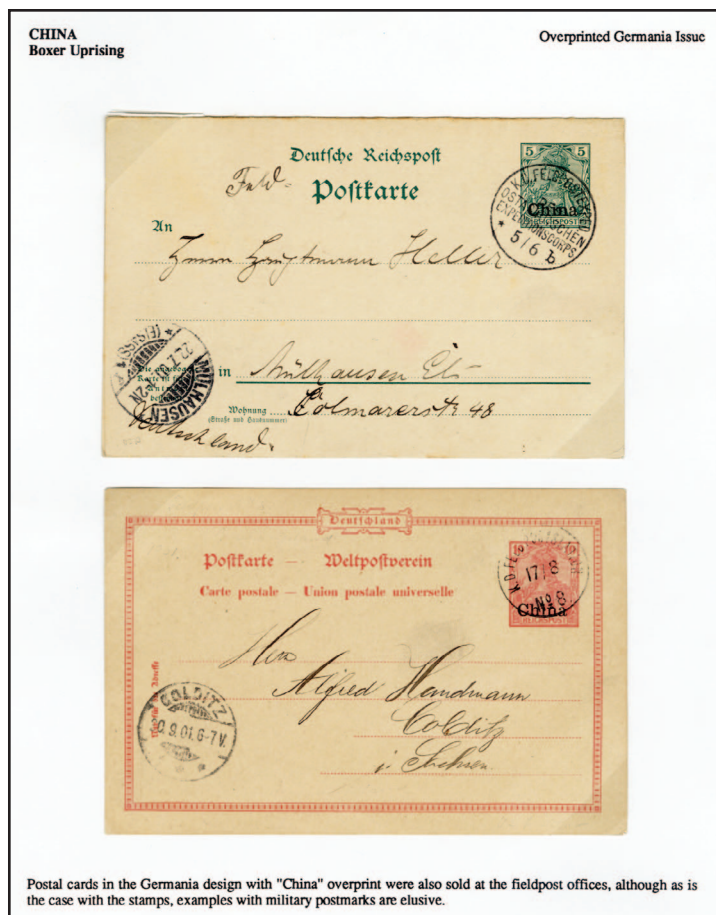 CHINA
Boxer Uprising
Overprinted Germania Issue
Deutsche Reichspost
5 5
Feld-
Postkarte
China
REICHSPOST
K.D. FELDPOSTEXPED
EXPEDITIONSCORPS
* 5/6 b
An
Herrn Hauptmann Heller
in Mülhausen Els
MÜLHAUSEN
(ELSASS)
Wohnung
(Straße und Hausnummer)
Colmarerstr 48
Deutschland.
Deutschland
Postkarte — Weltpostverein
Carte postale — Union postale universelle
10 10
17/8
No 8
China
Herrn
Alfred Handmann
Colditz
i. Sachsen.
COLDITZ
9.01.6-7V.
Postal cards in the Germania design with "China" overprint were also sold at the fieldpost offices, although as is
the case with the stamps, examples with military postmarks are elusive.